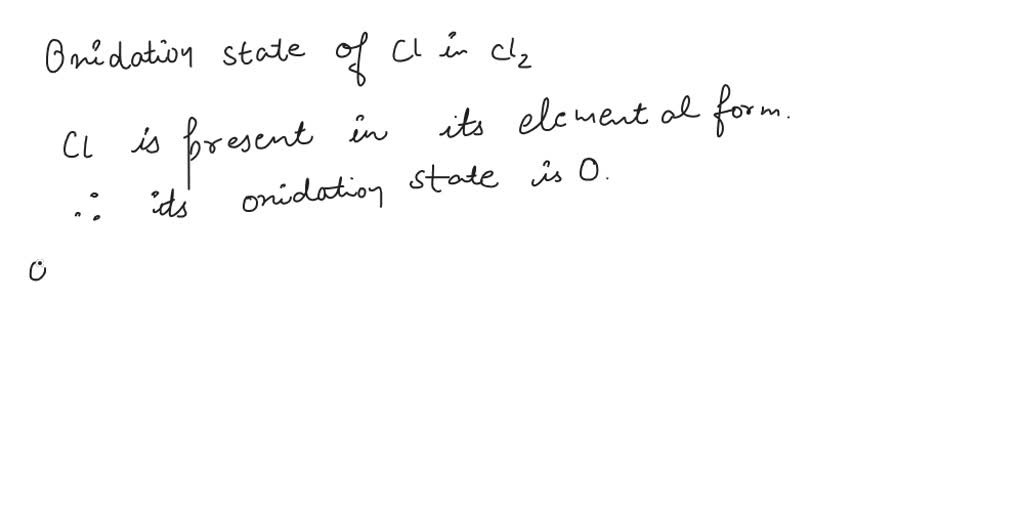 Oxidation state of Cl in Cl₂
Cl is present in its elemental form.
∴ its oxidation state is 0.
O